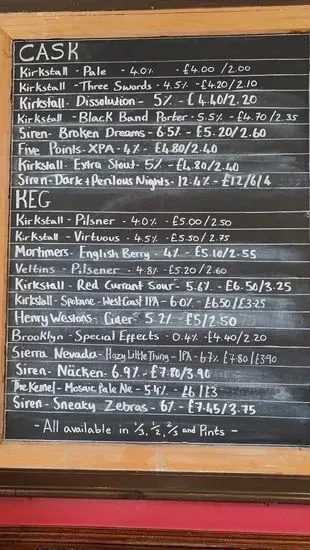 CASK
Kirkstall - Pale - 4.0% - £4.00 / 2.00
Kirkstall - Three Swords - 4.5% - £4.20 / 2.10
Kirkstall - Dissolution - 5% - £4.40/2.20
Kirkstall - Black Band Porter - 5.5% - £4.70 / 2.35
Siren - Broken Dreams - 6.5% - £5.20/2.60
Five Points - XPA - 4% £4.80/2.40
Kirkstall - Extra Stout - 5% - £4.80/2.40
Siren - Dark + Perilous Nights - 12.4% - £12/6/4
KEG
Kirkstall - Pilsner - 4.0% - £5.00/2.50
Kirkstall - Virtuous - 4.5% - £5.50/2.75
Mortimers - English Berry - 4% - £5.10/2.55
Veltins - Pilsener - 4.8% - £5.20/2.60
Kirkstall - Red Currant Sour - 5.6% - £6.50/3.25
Kirkstall - Spokane - West Coast IPA - 6.0% - £6.50/£3.25
Henry Westons - Cider - 5.2% - £5/2.50
Brooklyn - Special Effects - 0.4% - £4.40/2.20
Sierra Nevada - Hazy Little Thing - IPA - 6.7% £7.80/£3.90
Siren - Näcken - 6.9% - £7.80/3.90
The Kernel - Mosaic Pale Ale - 5.4% - £6/£3
Siren - Sneaky Zebras - 6% - £7.45/3.75
- All available in 1/3, 1/2, 2/3 and Pints -